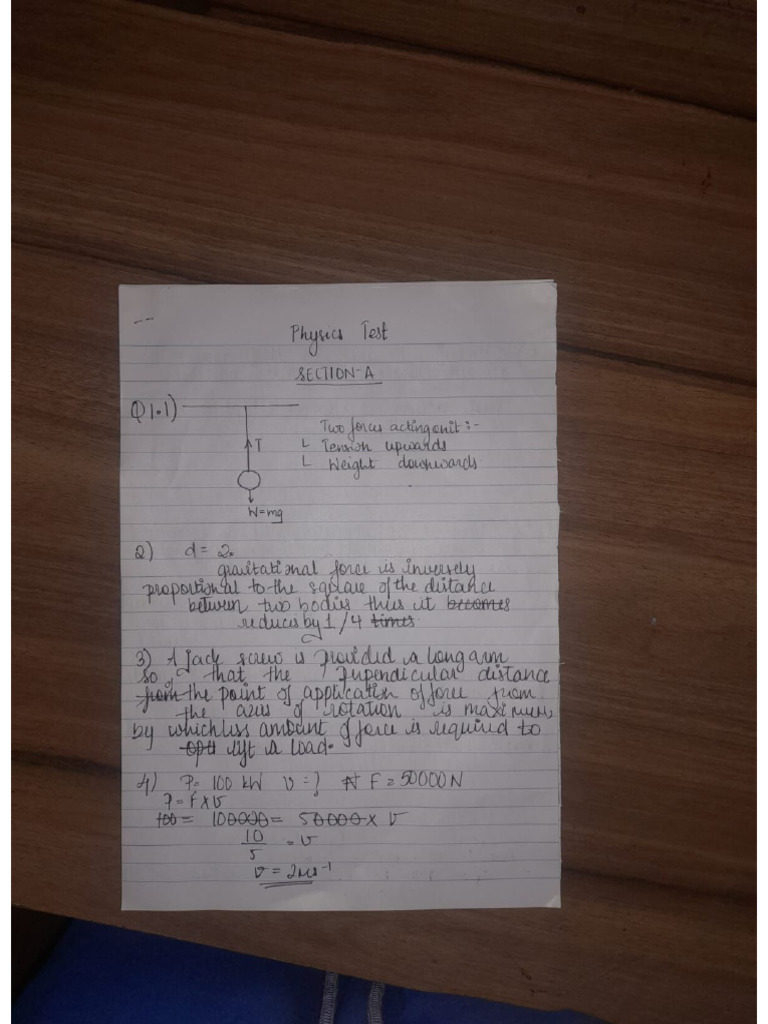 Physics Test
SECTION-A
Q1.1)
Two forces acting on it :-
T
Tension upwards
Weight downwards
W=mg
2) d = 2.
gravitational force is inversely
proportional to the square of the distance
between two bodies thus it becomes
reduces by 1/4 times
3) A jack screw is provided a long arm
so that the perpendicular distance
from the point of application of force from
the axis of rotation is maximum
by which less amount of force is required to
lift a load.
4) P= 100 kW v=? F = 50000N
P = F x v
100 = 100000 = 50000 x v
10/5 = v
v = 2ms⁻¹